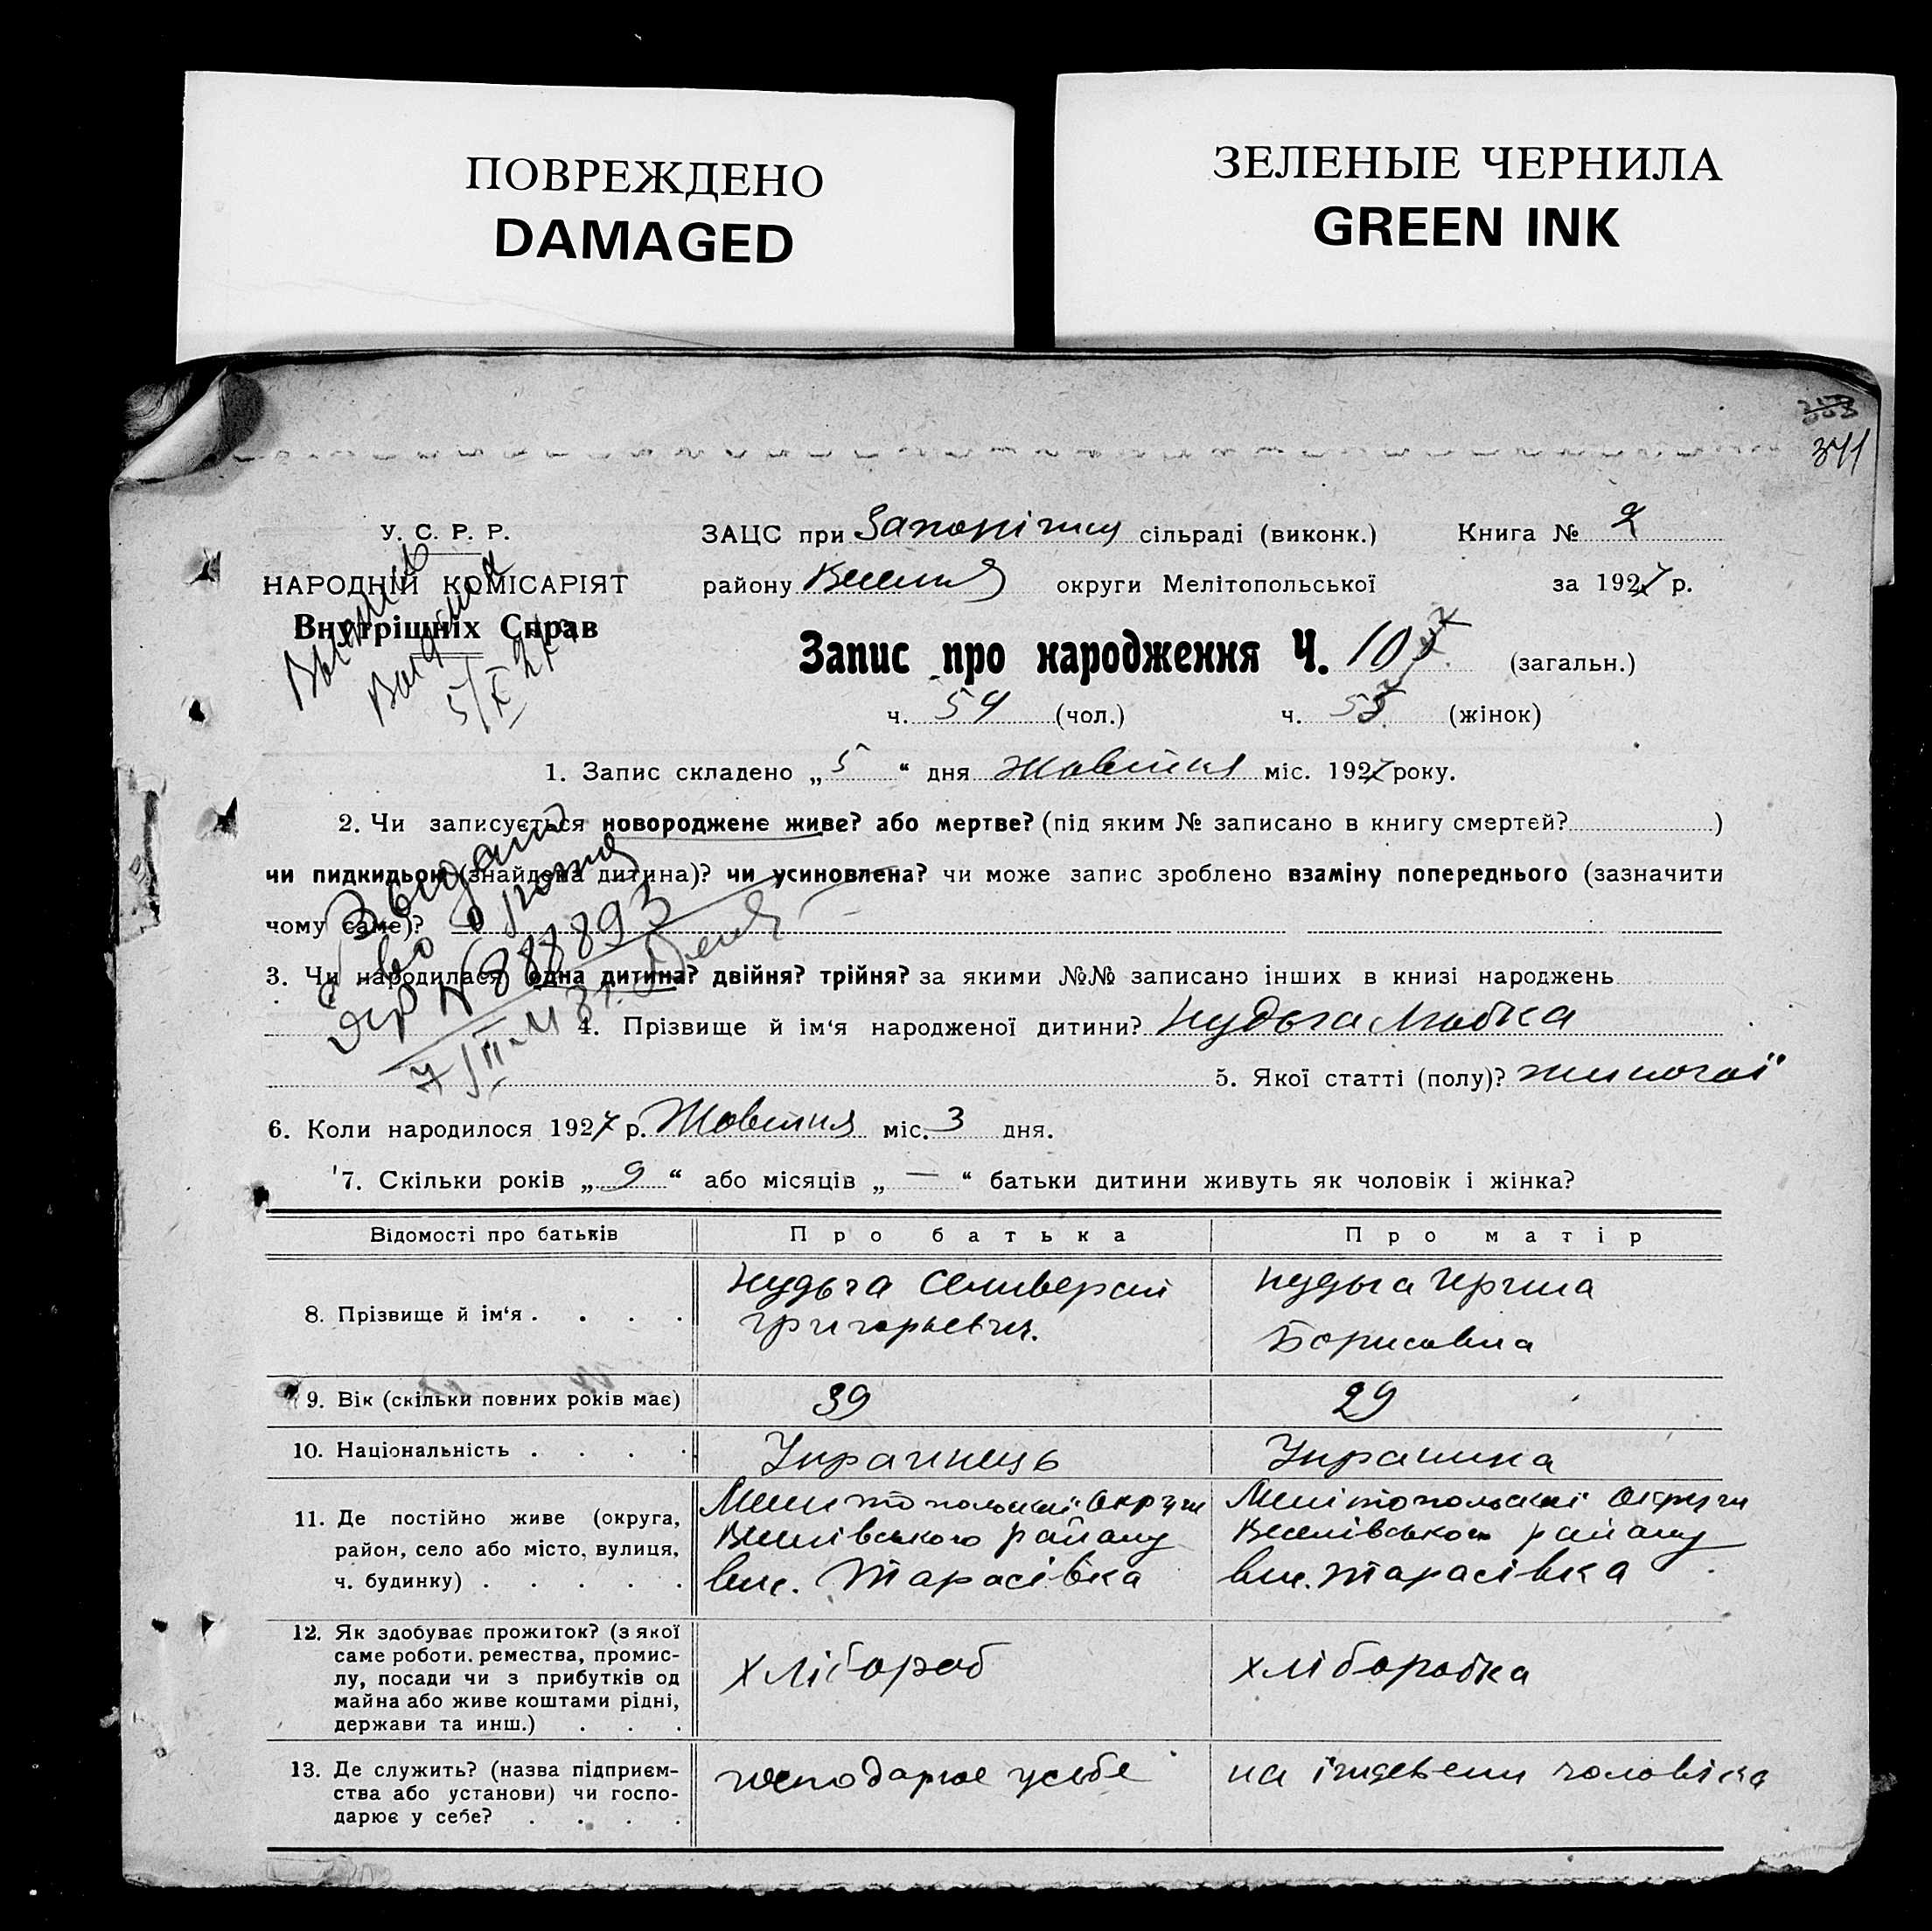 ПОВРЕЖДЕНО
DAMAGED
ЗЕЛЕНЫЕ ЧЕРНИЛА
GREEN INK
341
У. С. Р. Р.
НАРОДНІЙ КОМІСАРІЯТ
Внутрішніх Справ
ЗАЦС при сільраді (виконк.) Книга № 2
району округи Мелітопольської за 1927 р.
Запис про народження Ч. 107 (загальн.)
ч. 54 (чол.) ч. 53 (жінок)
1. Запис складено „ 5 “ дня Жовтня міс. 1927 року.
2. Чи записується новороджене живе? або мертве? (під яким № записано в книгу смертей? )
чи пидкидьок (знайдена дитина)? чи усиновлена? чи може запис зроблено взаміну попереднього (зазначити
чому саме)?
3. Чи народилася одна дитина? двійня? трійня? за якими №№ записано інших в книзі народжень
4. Прізвище й ім‘я народженої дитини? Нудьга Любка
5. Якої статті (полу)? жиночої
6. Коли народилося 1927 р. Жовтня міс. 3 дня.
7. Скільки років „ 9 “ або місяців „ — “ батьки дитини живуть як чоловік і жінка?
Відомості про батьків Про батька Про матір
8. Прізвище й ім‘я . . . . Нудьга Селиверст Нудьга Ирина
Григорьевич. Борисовна
9. Вік (скільки повних років має) 39 29
10. Національність . . . . Українець Українка
11. Де постійно живе (округа, Мелитопольської округи Мелітопольскої округи
район, село або місто, вулиця, Веселівського району Веселівського району
ч. будинку) . . . . . вис. Тарасівка вис. Тарасівка
12. Як здобуває прожиток? (з якої
саме роботи. ремества, промис-
лу, посади чи з прибутків од хлібороб хліборобка
майна або живе коштами рідні,
держави та инш.) . . .
13. Де служить? (назва підприєм- господарює усебе на іждевени чоловіка
ства або установи) чи госпо-
дарює у себе? . . . .
Выписка
Выдана
5/X 27
Выдано
№ 388893
7/II